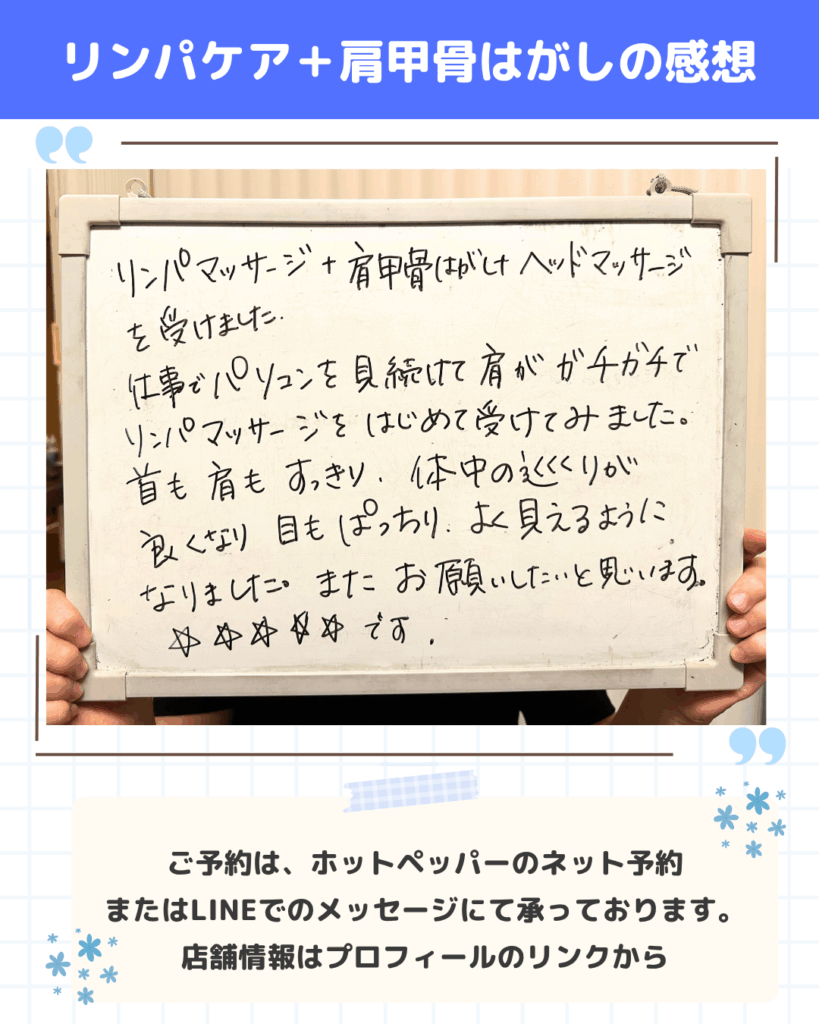 リンパケア＋肩甲骨はがしの感想
リンパマッサージ+肩甲骨はがし+ヘッドマッサージ
を受けました.
仕事でパソコンを見続けて肩がガチガチで
リンパマッサージをはじめて受けてみました。
首も肩もすっきり.体中のめぐりが
良くなり目もぱっちり.よく見えるように
なりました。またお願いしたいと思います。
☆☆☆☆☆です.
ご予約は、ホットペッパーのネット予約
またはLINEでのメッセージにて承っております。
店舗情報はプロフィールのリンクから